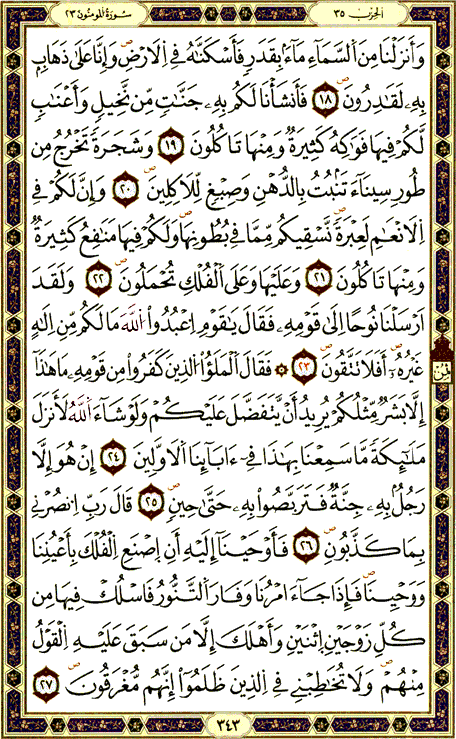 الحزب ٣٥
سورة المومنون ٢٣
وَأَنزَلْنَا مِنَ اَ۬لسَّمَآءِ مَآءَۢ بِقَدَرٖ فَأَسْكَنَّٰهُ فِے اِ۬لَارْضِ وَإِنَّا عَلَيٰ ذَهَابِۢ
بِهِۦ لَقَٰدِرُونَ ١٨ فَأَنشَأْنَا لَكُم بِهِۦ جَنَّٰتٖ مِّن نَّخِيلٖ وَأَعْنَٰبٖ
لَّكُمْ فِيهَا فَوَٰكِهُ كَثِيرَةٞ وَمِنْهَا تَاكُلُونَ ١٩ وَشَجَرَةٗ تَخْرُجُ مِن
طُورِ سِينَآءَ تَنۢبُتُ بِالدُّهْنِ وَصِبْغٖ لِّلَاكِلِينَ ٢٠ وَإِنَّ لَكُمْ فِے
اِ۬لَانْعَٰمِ لَعِبْرَةٗ نَّسْقِيكُم مِّمَّا فِے بُطُونِهَا وَلَكُمْ فِيهَا مَنَٰفِعُ كَثِيرَةٞ
وَمِنْهَا تَاكُلُونَ ٢١ وَعَلَيْهَا وَعَلَى اَ۬لْفُلْكِ تُحْمَلُونَ ٢٢ وَلَقَدَ
اَرْسَلْنَا نُوحاً اِلَيٰ قَوْمِهِۦ فَقَالَ يَٰقَوْمِ اِ۟عْبُدُواْ اُ۬للَّهَ مَا لَكُم مِّنِ اِلَٰهٍ
غَيْرُهُۥٓ أَفَلَا تَتَّقُونَ ٢٣ ۞ فَقَالَ اَ۬لْمَلَؤُاْ اُ۬لذِينَ كَفَرُواْ مِن قَوْمِهِۦ مَا هَٰذَآ
إِلَّا بَشَرٞ مِّثْلُكُمْ يُرِيدُ أَنْ يَّتَفَضَّلَ عَلَيْكُمْ وَلَوْ شَآءَ اَ۬للَّهُ لَأَنزَلَ
مَلَٰٓئِكَةٗ مَّا سَمِعْنَا بِهَٰذَا فِےٓ ءَابَآئِنَا اَ۬لَاوَّلِينَ ٢٤ إِنْ هُوَ إِلَّا
رَجُلُۢ بِهِۦ جِنَّةٞ فَتَرَبَّصُواْ بِهِۦ حَتَّيٰ حِينٖ ٢٥ قَالَ رَبِّ اِ۟نصُرْنِے
بِمَا كَذَّبُونِ ٢٦ فَأَوْحَيْنَآ إِلَيْهِ أَنِ اِ۪صْنَعِ اِ۬لْفُلْكَ بِأَعْيُنِنَا
وَوَحْيِنَا فَإِذَا جَآءَ امْرُنَا وَفَارَ اَ۬لتَّنُّورُ فَاسْلُكْ فِيهَا مِن
كُلِّ زَوْجَيْنِ اِ۪ثْنَيْنِ وَأَهْلَكَ إِلَّا مَن سَبَقَ عَلَيْهِ اِ۬لْقَوْلُ
مِنْهُمْ وَلَا تُخَٰطِبْنِے فِے اِ۬لذِينَ ظَلَمُوٓاْ إِنَّهُم مُّغْرَقُونَ ٢٧
ثمن
٣٤٣